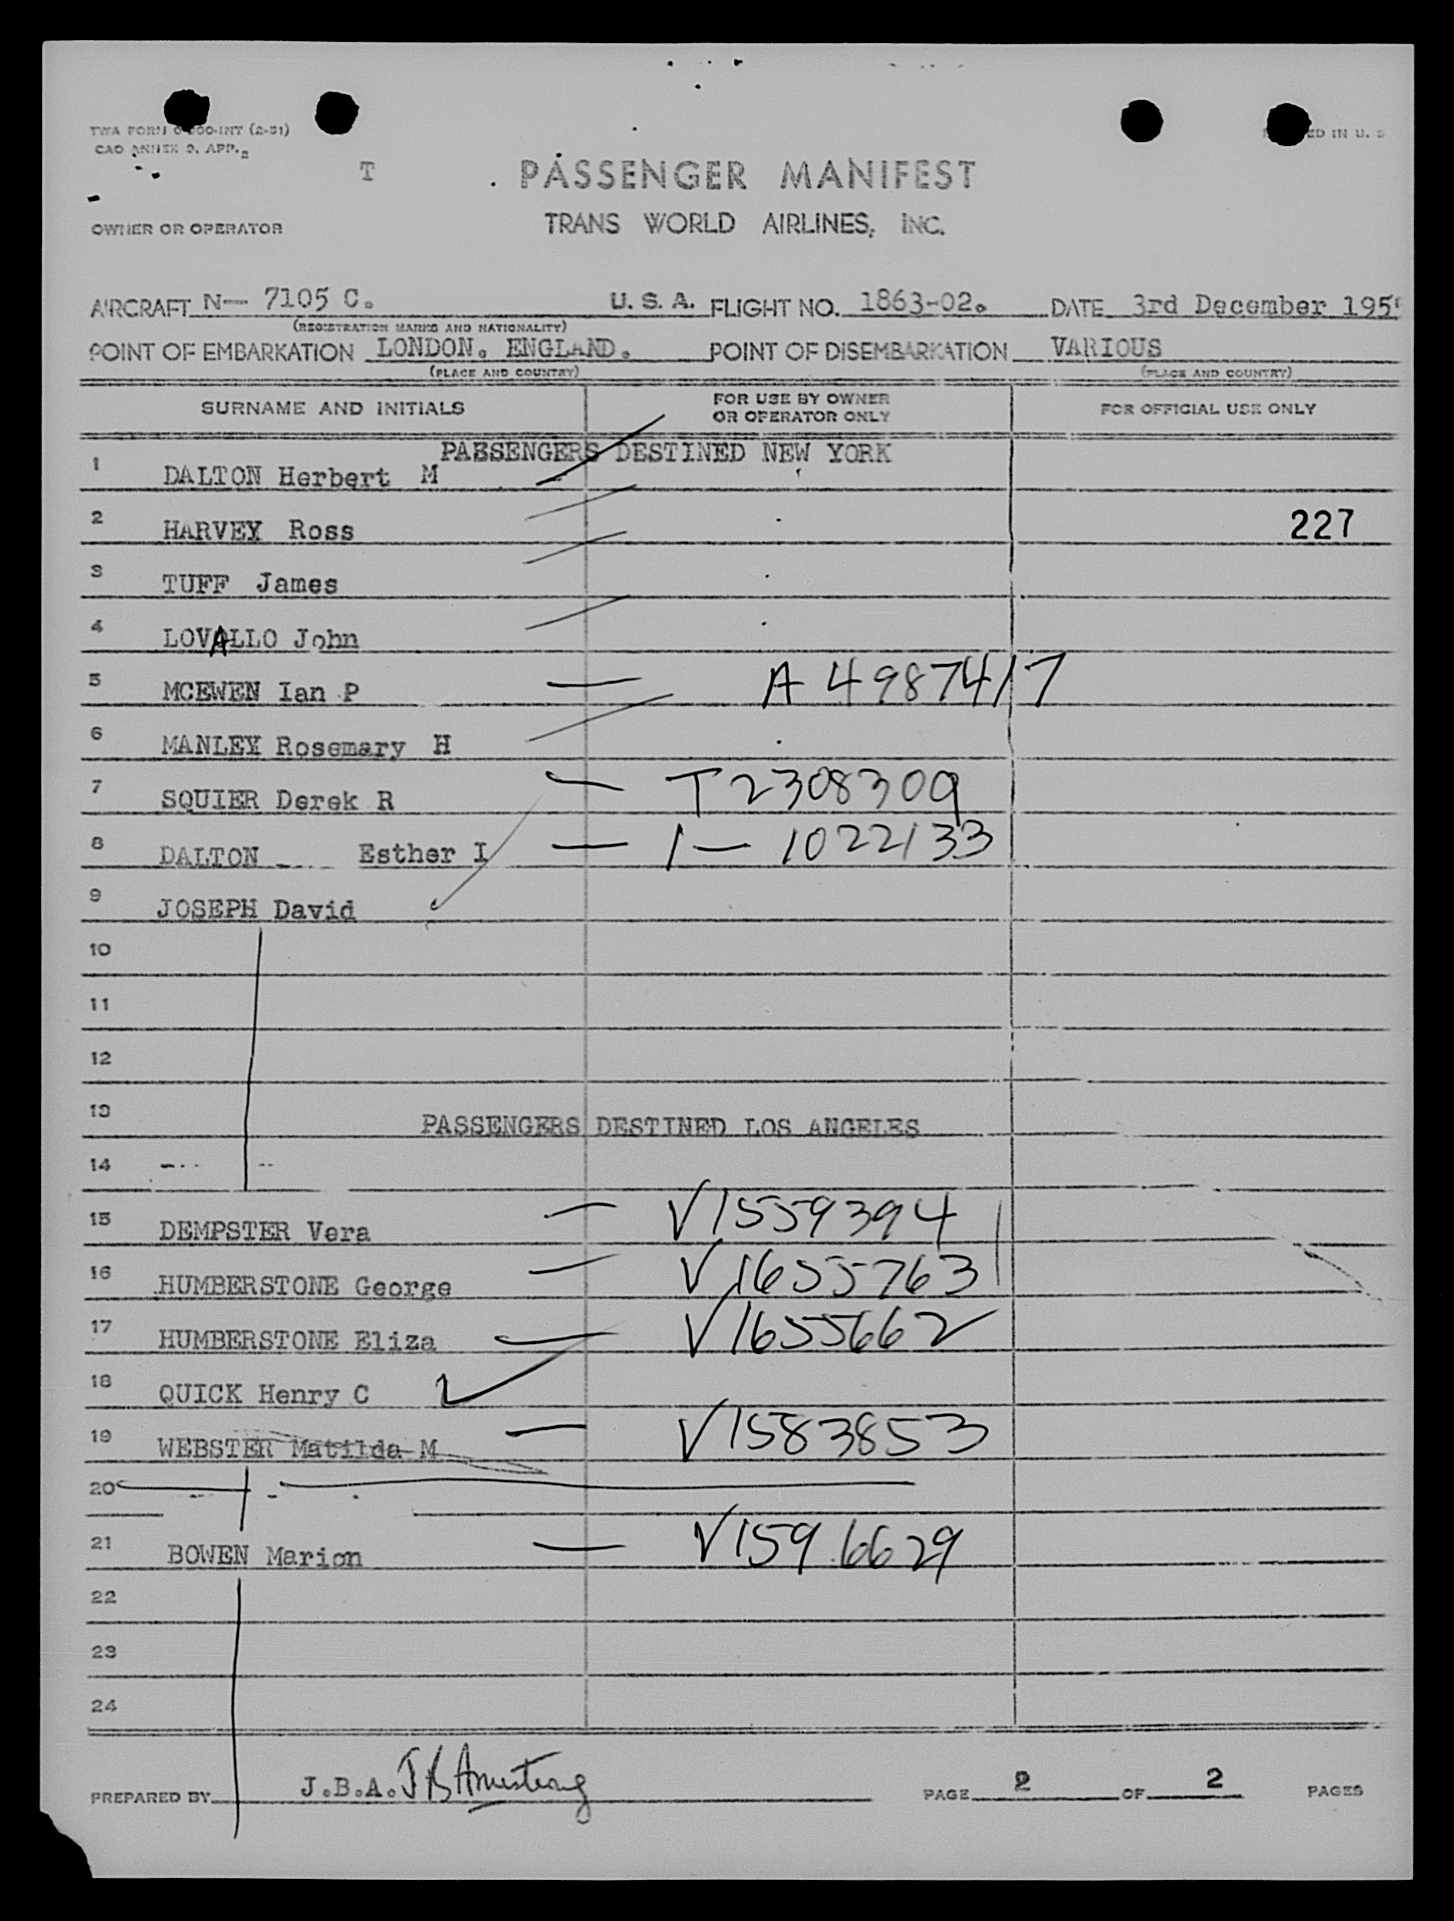 TWA FORM (2-51)
CAO ANNEX 9. APP. 2
T
PASSENGER MANIFEST
TRANS WORLD AIRLINES, INC.
OWNER OR OPERATOR
AIRCRAFT N— 7105 C. U. S. A. FLIGHT NO. 1863-02. DATE 3rd December 195
(REGISTRATION MARKS AND NATIONALITY)
POINT OF EMBARKATION LONDON. ENGLAND. POINT OF DISEMBARKATION VARIOUS
(PLACE AND COUNTRY) (PLACE AND COUNTRY)
SURNAME AND INITIALS FOR USE BY OWNER OR OPERATOR ONLY FOR OFFICIAL USE ONLY
PASSENGERS DESTINED NEW YORK
1 DALTON Herbert M
2 HARVEY Ross 227
3 TUFF James
4 LOVALLO John
5 MCEWEN Ian P — A 4987417
6 MANLEY Rosemary H
7 SQUIER Derek R — T2308309
8 DALTON Esther I — 1— 1022133
9 JOSEPH David
10
11
12
13 PASSENGERS DESTINED LOS ANGELES
14
15 DEMPSTER Vera — V1559394
16 HUMBERSTONE George — V1655763
17 HUMBERSTONE Eliza — V1655662
18 QUICK Henry C
19 WEBSTER Matilda M — V1583853
20
21 BOWEN Marion — V1596629
22
23
24
PREPARED BY J.B.A. J B Armstrong PAGE 2 OF 2 PAGES